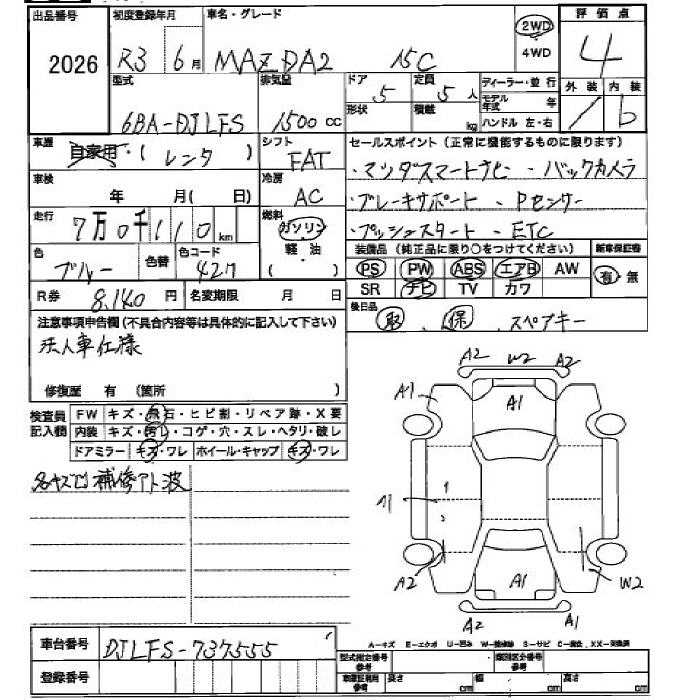 出品番号 2026
初度登録年月 R3 6月
車名・グレード MAZDA2 15C
2WD
4WD
評価点 4
外装 内装 b
型式 6BA-DJLFS
排気量 1500 CC
ドア 5
定員 5人
形状
積載 kg
ディーラー・並行
モデル年式 年
ハンドル 左・右
車歴 自家用・(レンタ)
シフト FAT
車検 年 月( 日)
冷房 AC
走行 7万0千110 km
燃料 ガソリン 軽・油 ( )
色 ブルー 色替
色コード 42M
R券 8,140円
名変期限 月 日
セールスポイント (正常に機能するものに限ります)
・マツダスマートナビ・バックカメラ
・ブレーキサポート・Pセンサー
・プッシュスタート・ETC
装備品 (純正品に限り○をつけてください)
新車保証機
PS PW ABS エアB AW 有・無
SR ナビ TV カワ
後日品 取、保、スペアキー
注意事項申告欄(不具合内容等は具体的に記入して下さい)
法人車仕様
修復歴 有 (箇所 )
検査員記入欄
FW キズ・飛石・ヒビ割・リペア跡・X要
内装 キズ・汚レ・コゲ・穴・スレ・ヘタリ・破レ
ドアミラー キズ・ワレ ホイール・キャップ キズ・ワレ
補修アト波
A2 W2 A2
A1 A1
A1
A2 A1 W2
A2 A1
車台番号 DJLFS-737555
登録番号
A-キズ E-エクボ U-凹み W-補修跡 S-サビ C-腐食 XX-交換済
型式指定番号参考
類別区分番号参考
車庫証明用参考 長さ cm 幅 cm 高さ cm